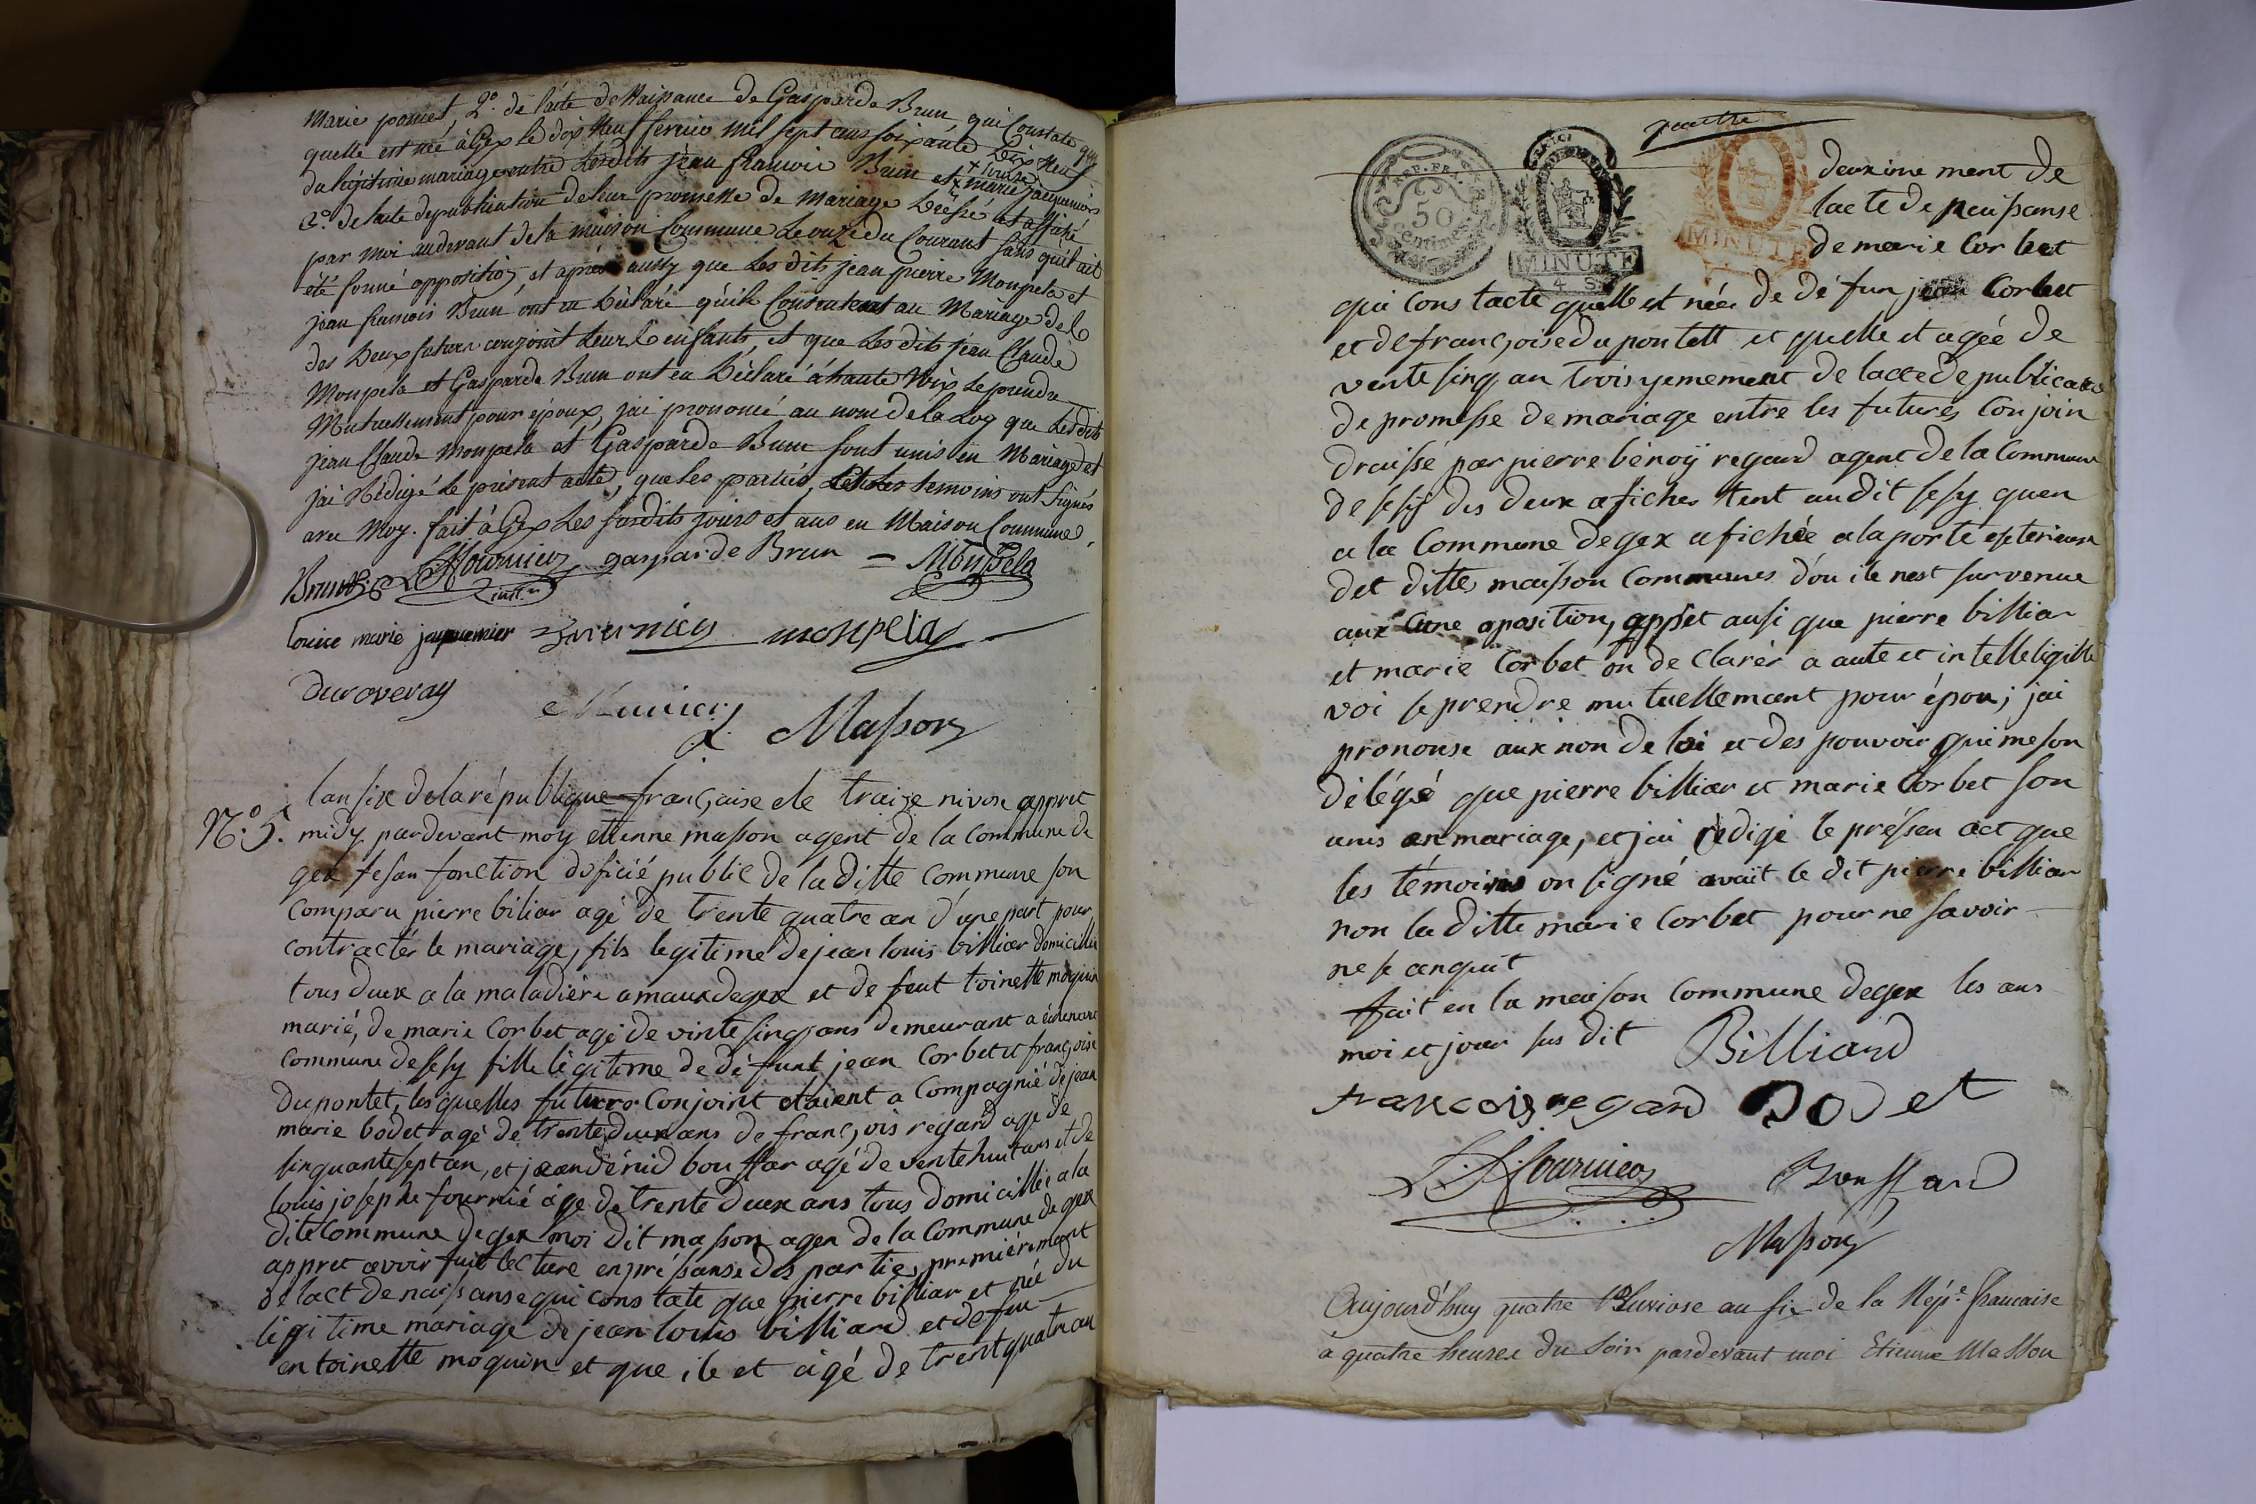 Marie pomet, 2°. de l'acte de Naissance de Gasparde Brun qui Constate
quelle est née à Gex le dix Neuf fevrier mil sept cens soixante dix Neuf
du légitime mariage entre lesdits jean francois Brun et marie jacquemier
3°. de l'acte depublication de leur promesse de Mariage Dréssé et affiché
par Moi audevant de la Maison Commune Le onze du Courant sans qu'il ait
été formé opposition, et après aussy que Les dits jean pierre Monpela et
jean francois Brun ont eu Déclaré qu'ils Consentent au Mariage de
des Deux futurs conjoint Leurs enfants, et que Les dits jean Claude
Monpela et Gasparde Brun ont eu Déclaré à haute Voix se prendre
Mutuellement pour époux, jai prononcé au nom de la Loy que Lesdits
jean Claude Monpela et Gasparde Brun sont unis en Mariage et
jai Rédigé le présent acte, que les parties, et Les temoins ont Signés
avec Moy. fait à Gex Les susdits jours et ans en Maison Commune
Brun gasparde Brun = Monpela
Louise marie jaquemier monpela
duroveray
Masson
N.° 5.
lan six de la république française e le traize nivose appret
midy pardevant moy etienne masson agent de la Commune de
gex fesan fonction doficié public de la ditte Commune son
Comparu pierre biliar agé de trente quatre an d'une part pour
contractér le mariage, fils legitime de jean louis billiar domicillié
tous deux a la maladiére a maux de gex et de feut toinette moquin
marié, de marie Corbet agé de vinte sinq ans demeurant a
Commune de sesy fille légitime de défunt jean Corbet et françoise
Dupontet, les quelles futurs Conjoint étaient a Compagnié de jean
marie bodet agé de trente deux ans de franç,ois regard age de
sinquante sept an, et jean dénid boussar agé de vente huit ans et de
louis josephe fournié age de trente deux ans tous domicillié a la
dite Commune de gex moi dit masson agen de la Commune de gex
appret avoir fait lecture en préssanse des parties, premiéremant
de lact de naissanse qui constate que pierre billiar et née du
légitime mariage de jean louis billiard et defeu
entoinette moquin et que ile et agé de trent quatre an
quatre
REP. FRA.
50
centimes
MINUTE
MINUTE
deuxime ment de
lacte de naissanse
de marie Corbet
qui constacte quelle est née de défun jean Corbet
et de franç,oise dupontett et quelle et agée de
vente sinq an troisyemement de lacte de publication
de promesse de mariage entre les futures Conjoin
draissé par pierre bénoÿ regard agent de la Commune
de sesy des deux afiches tent audit sesy quen
a la Commune de gex afichée a la porte exterieur
det dittes maisson Communes d'ou ile nest survenue
aux Cune aposition, appret ausi que pierre billiar
et marie Corbet on de Clarér a aute et intelleligible
voi se prendre mutuellemant pour épou; jai
prononse aux non de loi et des pouvoir qui me son
délégé que pierre billiar et marie Corbet son
unis en mariage, et jai rédigé le préssen act que
les témoins on signé avait le dit pierre billiar
non la ditte marie Corbet pour ne savoir
ne se anquit
fait en la maison Commune degex les ans
moi et jour sus dit Billiard
francois regard Bodet
Boussard
Masson
Aujourd'huy quatre Pluviose an six de la Rép.e francaise
à quatre heures du Soir pardevant moi Etienne Masson